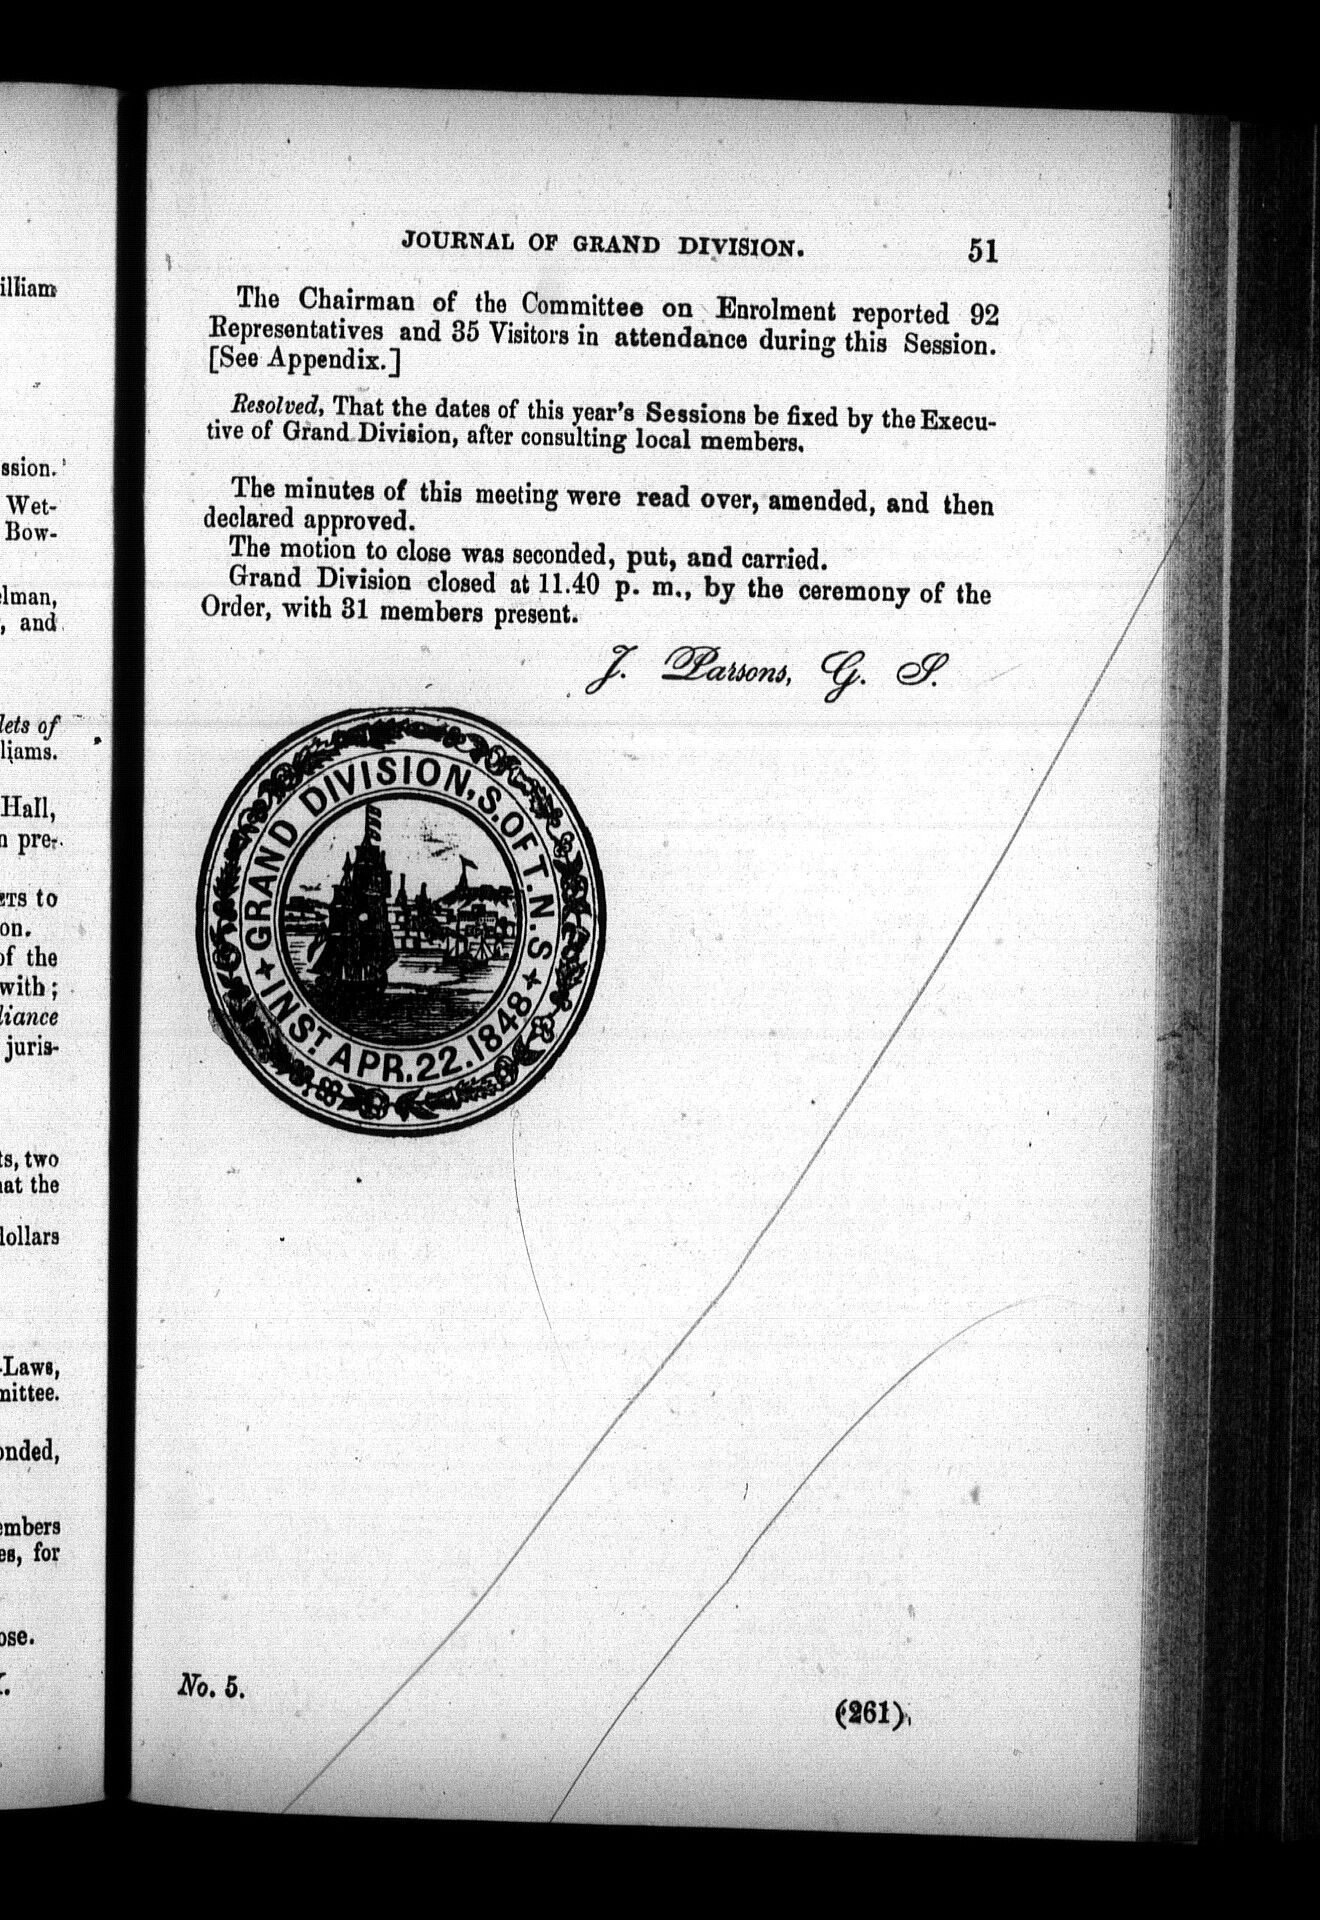 illiam
ssion.
Wet-
Bow-
lman,
, and
lets of
liams.
Hall,
pre-
ETS to
on.
of the
with;
liance
juris-
ts, two
at the
dollars
-Laws,
mittee.
onded,
embers
es, for
ose.
JOURNAL OF GRAND DIVISION. 51
The Chairman of the Committee on Enrolment reported 92
Representatives and 35 Visitors in attendance during this Session.
[See Appendix.]
Resolved, That the dates of this year's Sessions be fixed by the Execu-
tive of Grand Division, after consulting local members.
The minutes of this meeting were read over, amended, and then
declared approved.
The motion to close was seconded, put, and carried.
Grand Division closed at 11.40 p. m., by the ceremony of the
Order, with 31 members present.
J. Parsons, G. S.
GRAND DIVISION, S. OF T. N. S.
INST. APR. 22. 1848
No. 5.
(261)